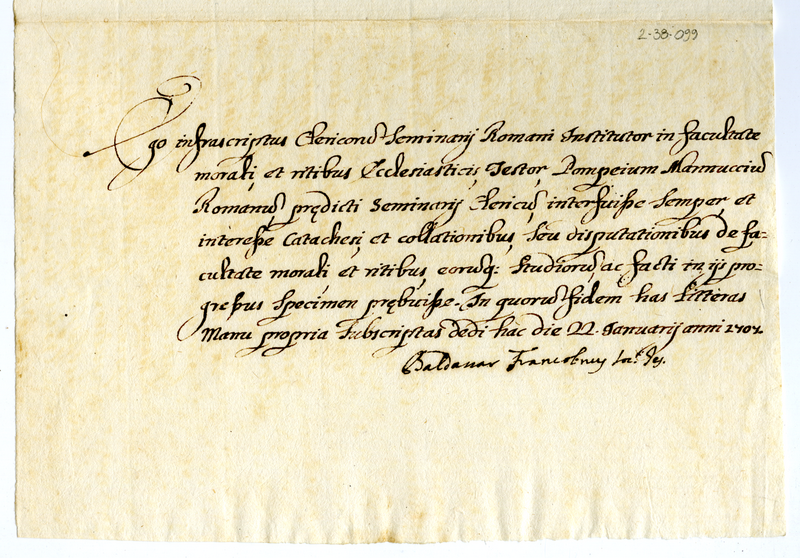 2-38-099
Ego infrascriptus Clericorũ Seminarij Romani Institutor in facultate
morali, et ritibus Ecclesiasticis Testor Pompeium Mannucciũ
Romanũ prędicti Seminarij Clericũ interfuiße semper, et
intereße Catachesi, et collationibus, seu disputationibus de fa-
cultate morali et ritibus, eorusq; studiorũ, ac facti in ijs pro-
greßus specimen prębuiße. In quorũ fidem has litteras
Manu propria subscriptas dedi hac die 22. Januarij anni 1701.
Baldassar Soc.s Jes.